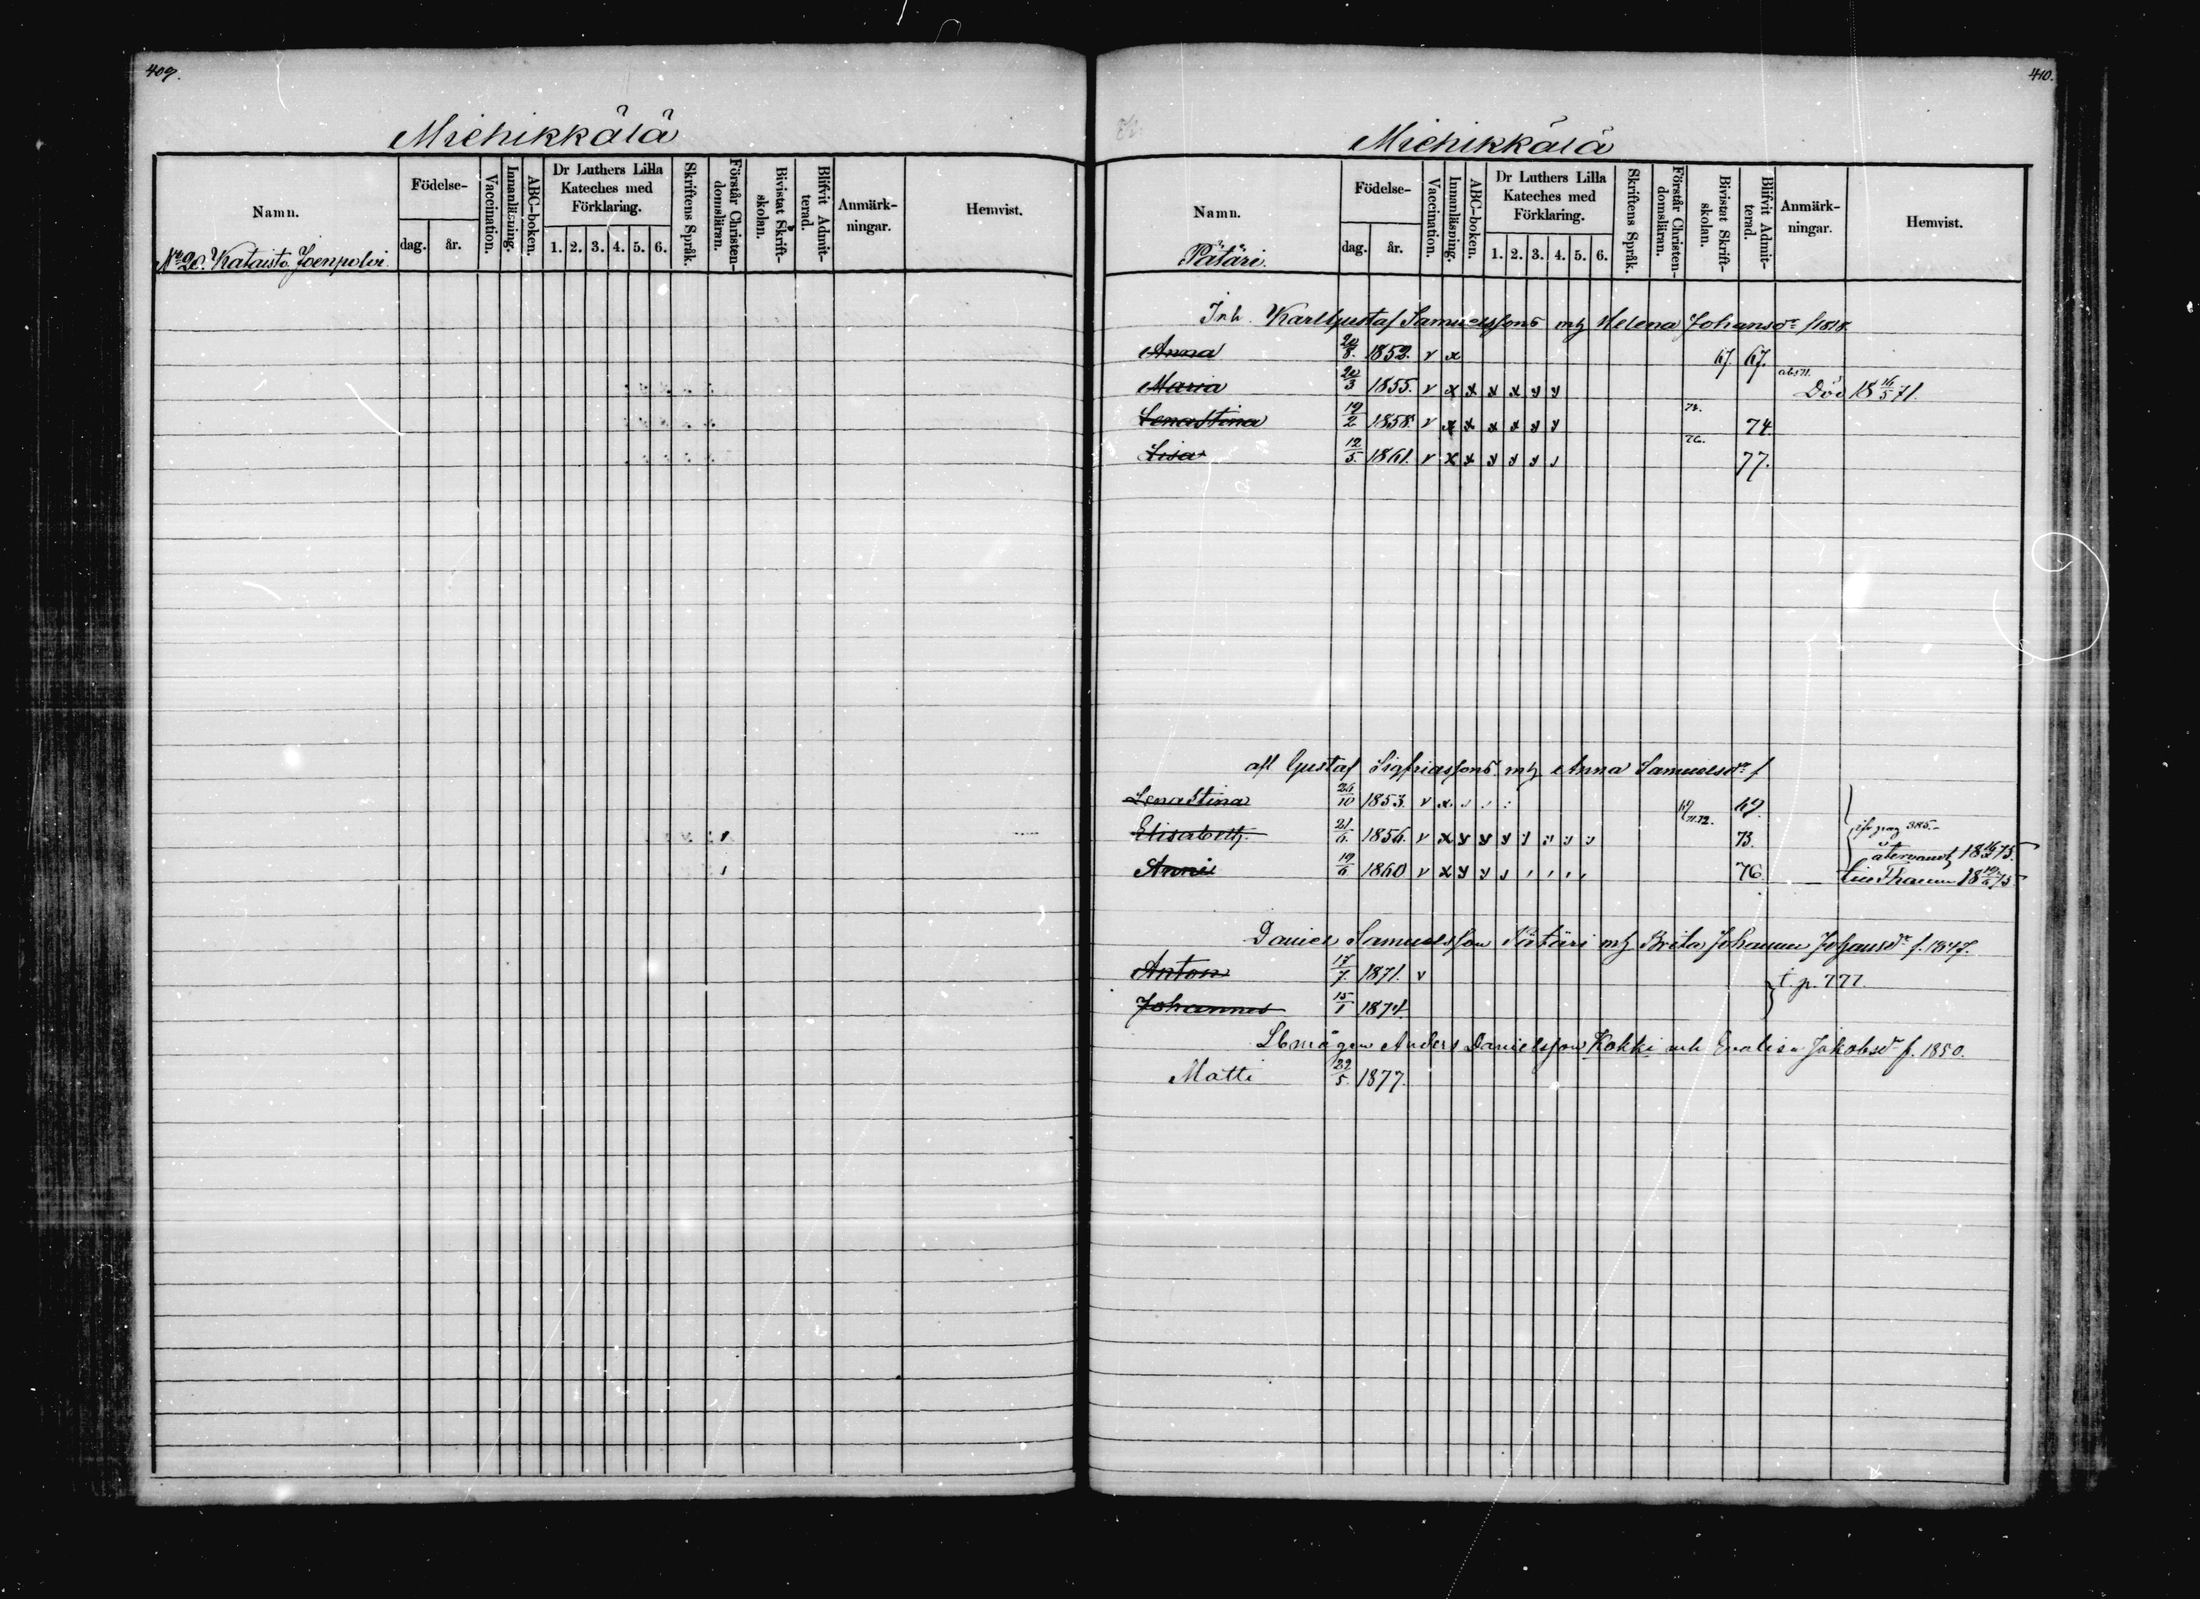 409.
Michikkälä
Namn.
Födelse-
dag.
år.
Vaccination.
Innanläsning.
ABC-boken.
Dr Luthers Lilla Kateches med Förklaring.
1. 2. 3. 4. 5. 6.
Skriftens Språk.
Förstår Christendomsläran.
Bivistat Skriftskolan.
Blifvit Admitterad.
Anmärkningar.
Hemvist.
Kataisto Joenpolvi.
410.
Michikkälä
Namn.
Födelse-
dag.
år.
Vaccination.
Innanläsning.
ABC-boken.
Dr Luthers Lilla Kateches med Förklaring.
1. 2. 3. 4. 5. 6.
Skriftens Språk.
Förstår Christendomsläran.
Bivistat Skriftskolan.
Blifvit Admitterad.
Anmärkningar.
Hemvist.
Pätäri.
Inh. Karl Gustaf Samuelssons Helena Johansdr f 1818
Anna 20/8. 1852. v x 67 67.
Maria 20/3 1855. v x x x x y y Död 18 16/5 71.
Lenastina 19/2 1858 v x x x x y y 74
Lisa 12/5. 1861. v x x y y y 76. 77.
afl Gustaf Sigfridssons Anna Samuelsdr f
Lenastina 1853. v x 69.
Elisabeth 21/6. 1856. v x y y y y 71.72. 73.
pag 385.
Anna 19/6 1860 v x y y 76.
Daniel Samuelsson Pätäri Brita Johanna Johansdr f. 1847.
Anton 17/7. 1871. v
t p. 777.
Johannes 15/1 1874.
Anders Danielsson Kokki Evalisa Jakobsdr f. 1850.
Matti 22/5. 1877.